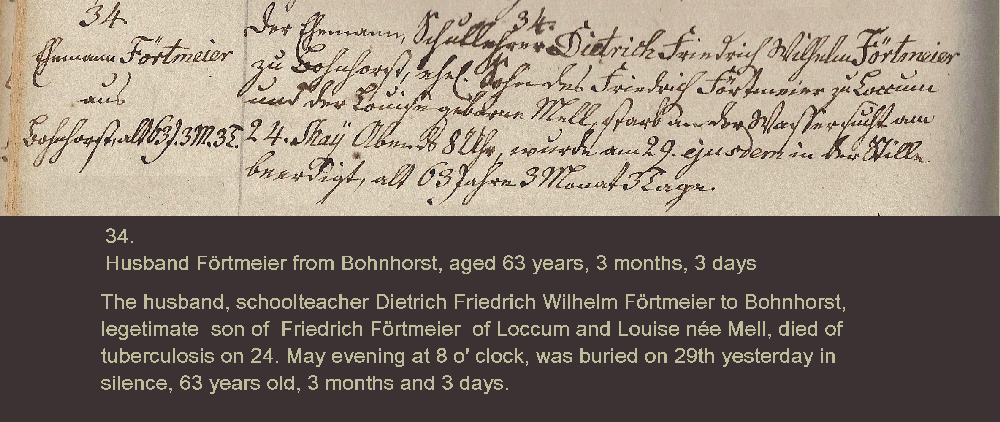 34.
Ehemann Förtmeier
aus
Bohnhorst, alt 63 J. 3 M. 3 T.
34.
Der Ehemann, Schullehrer Dietrich Friedrich Wilhelm Förtmeier
zu Bohnhorst, ehel. Sohn des Friedrich Förtmeier zu Loccum
und der Louise geborne Mell, starb an der Wassersucht am
24. May Abends 8 Uhr, wurde am 29. ejusdem in der Stille
beerdigt, alt 63 Jahre 3 Monat 3 Tage.
34.
Husband Förtmeier from Bohnhorst, aged 63 years, 3 months, 3 days
The husband, schoolteacher Dietrich Friedrich Wilhelm Förtmeier to Bohnhorst,
legetimate son of Friedrich Förtmeier of Loccum and Louise née Mell, died of
tuberculosis on 24. May evening at 8 o' clock, was buried on 29th yesterday in
silence, 63 years old, 3 months and 3 days.